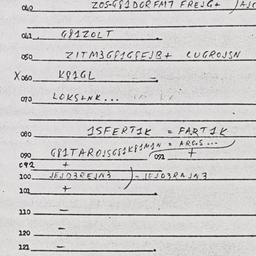 040 ZOS-G81DORFMT FREJG+
041 G81ZOLT
050 ZITM3G81GSFJB+ LUGROJSN
X 060 K81GL
070 LOKS+NK...
080 1SFERT1K = FART1K
090 G81TAROJSG81K81N1N = ARGS...
091 +
092 +
100 JEJO3REJN3 - JEJO3RAJN3
101 +
110 —
120 —
121 —